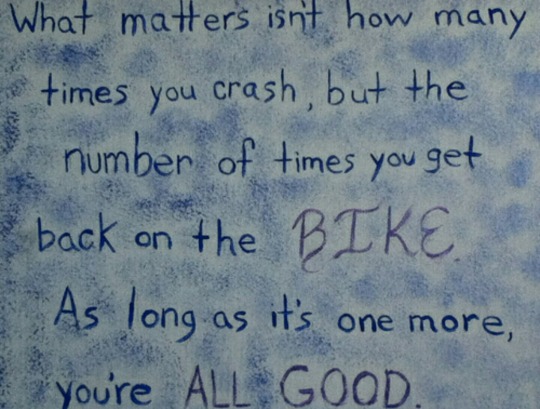 What matters isn't how many
times you crash, but the
number of times you get
back on the BIKE.
As long as it's one more,
you're ALL GOOD.